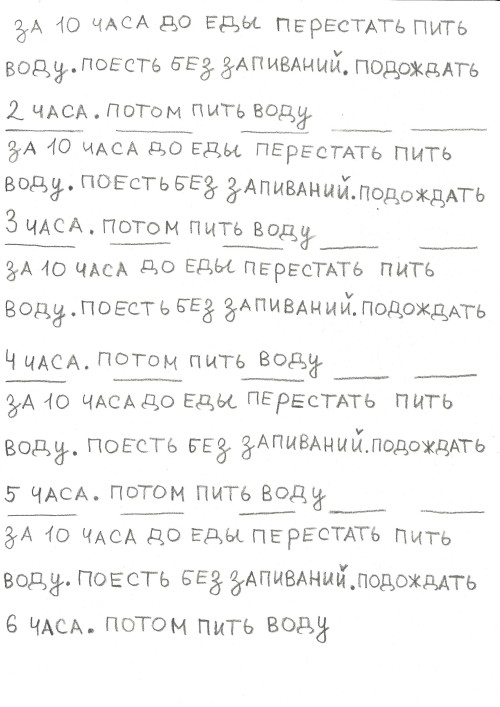 ЗА 10 ЧАСА ДО ЕДЫ ПЕРЕСТАТЬ ПИТЬ
ВОДУ. ПОЕСТЬ БЕЗ ЗАПИВАНИЙ. ПОДОЖДАТЬ
2 ЧАСА. ПОТОМ ПИТЬ ВОДУ
ЗА 10 ЧАСА ДО ЕДЫ ПЕРЕСТАТЬ ПИТЬ
ВОДУ. ПОЕСТЬ БЕЗ ЗАПИВАНИЙ. ПОДОЖДАТЬ
3 ЧАСА. ПОТОМ ПИТЬ ВОДУ
ЗА 10 ЧАСА ДО ЕДЫ ПЕРЕСТАТЬ ПИТЬ
ВОДУ. ПОЕСТЬ БЕЗ ЗАПИВАНИЙ. ПОДОЖДАТЬ
4 ЧАСА. ПОТОМ ПИТЬ ВОДУ
ЗА 10 ЧАСА ДО ЕДЫ ПЕРЕСТАТЬ ПИТЬ
ВОДУ. ПОЕСТЬ БЕЗ ЗАПИВАНИЙ. ПОДОЖДАТЬ
5 ЧАСА. ПОТОМ ПИТЬ ВОДУ
ЗА 10 ЧАСА ДО ЕДЫ ПЕРЕСТАТЬ ПИТЬ
ВОДУ. ПОЕСТЬ БЕЗ ЗАПИВАНИЙ. ПОДОЖДАТЬ
6 ЧАСА. ПОТОМ ПИТЬ ВОДУ